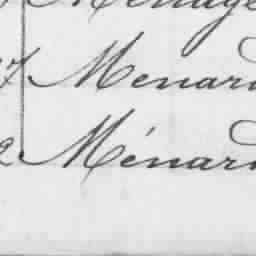 Menage
7 Menard
2 Ménard